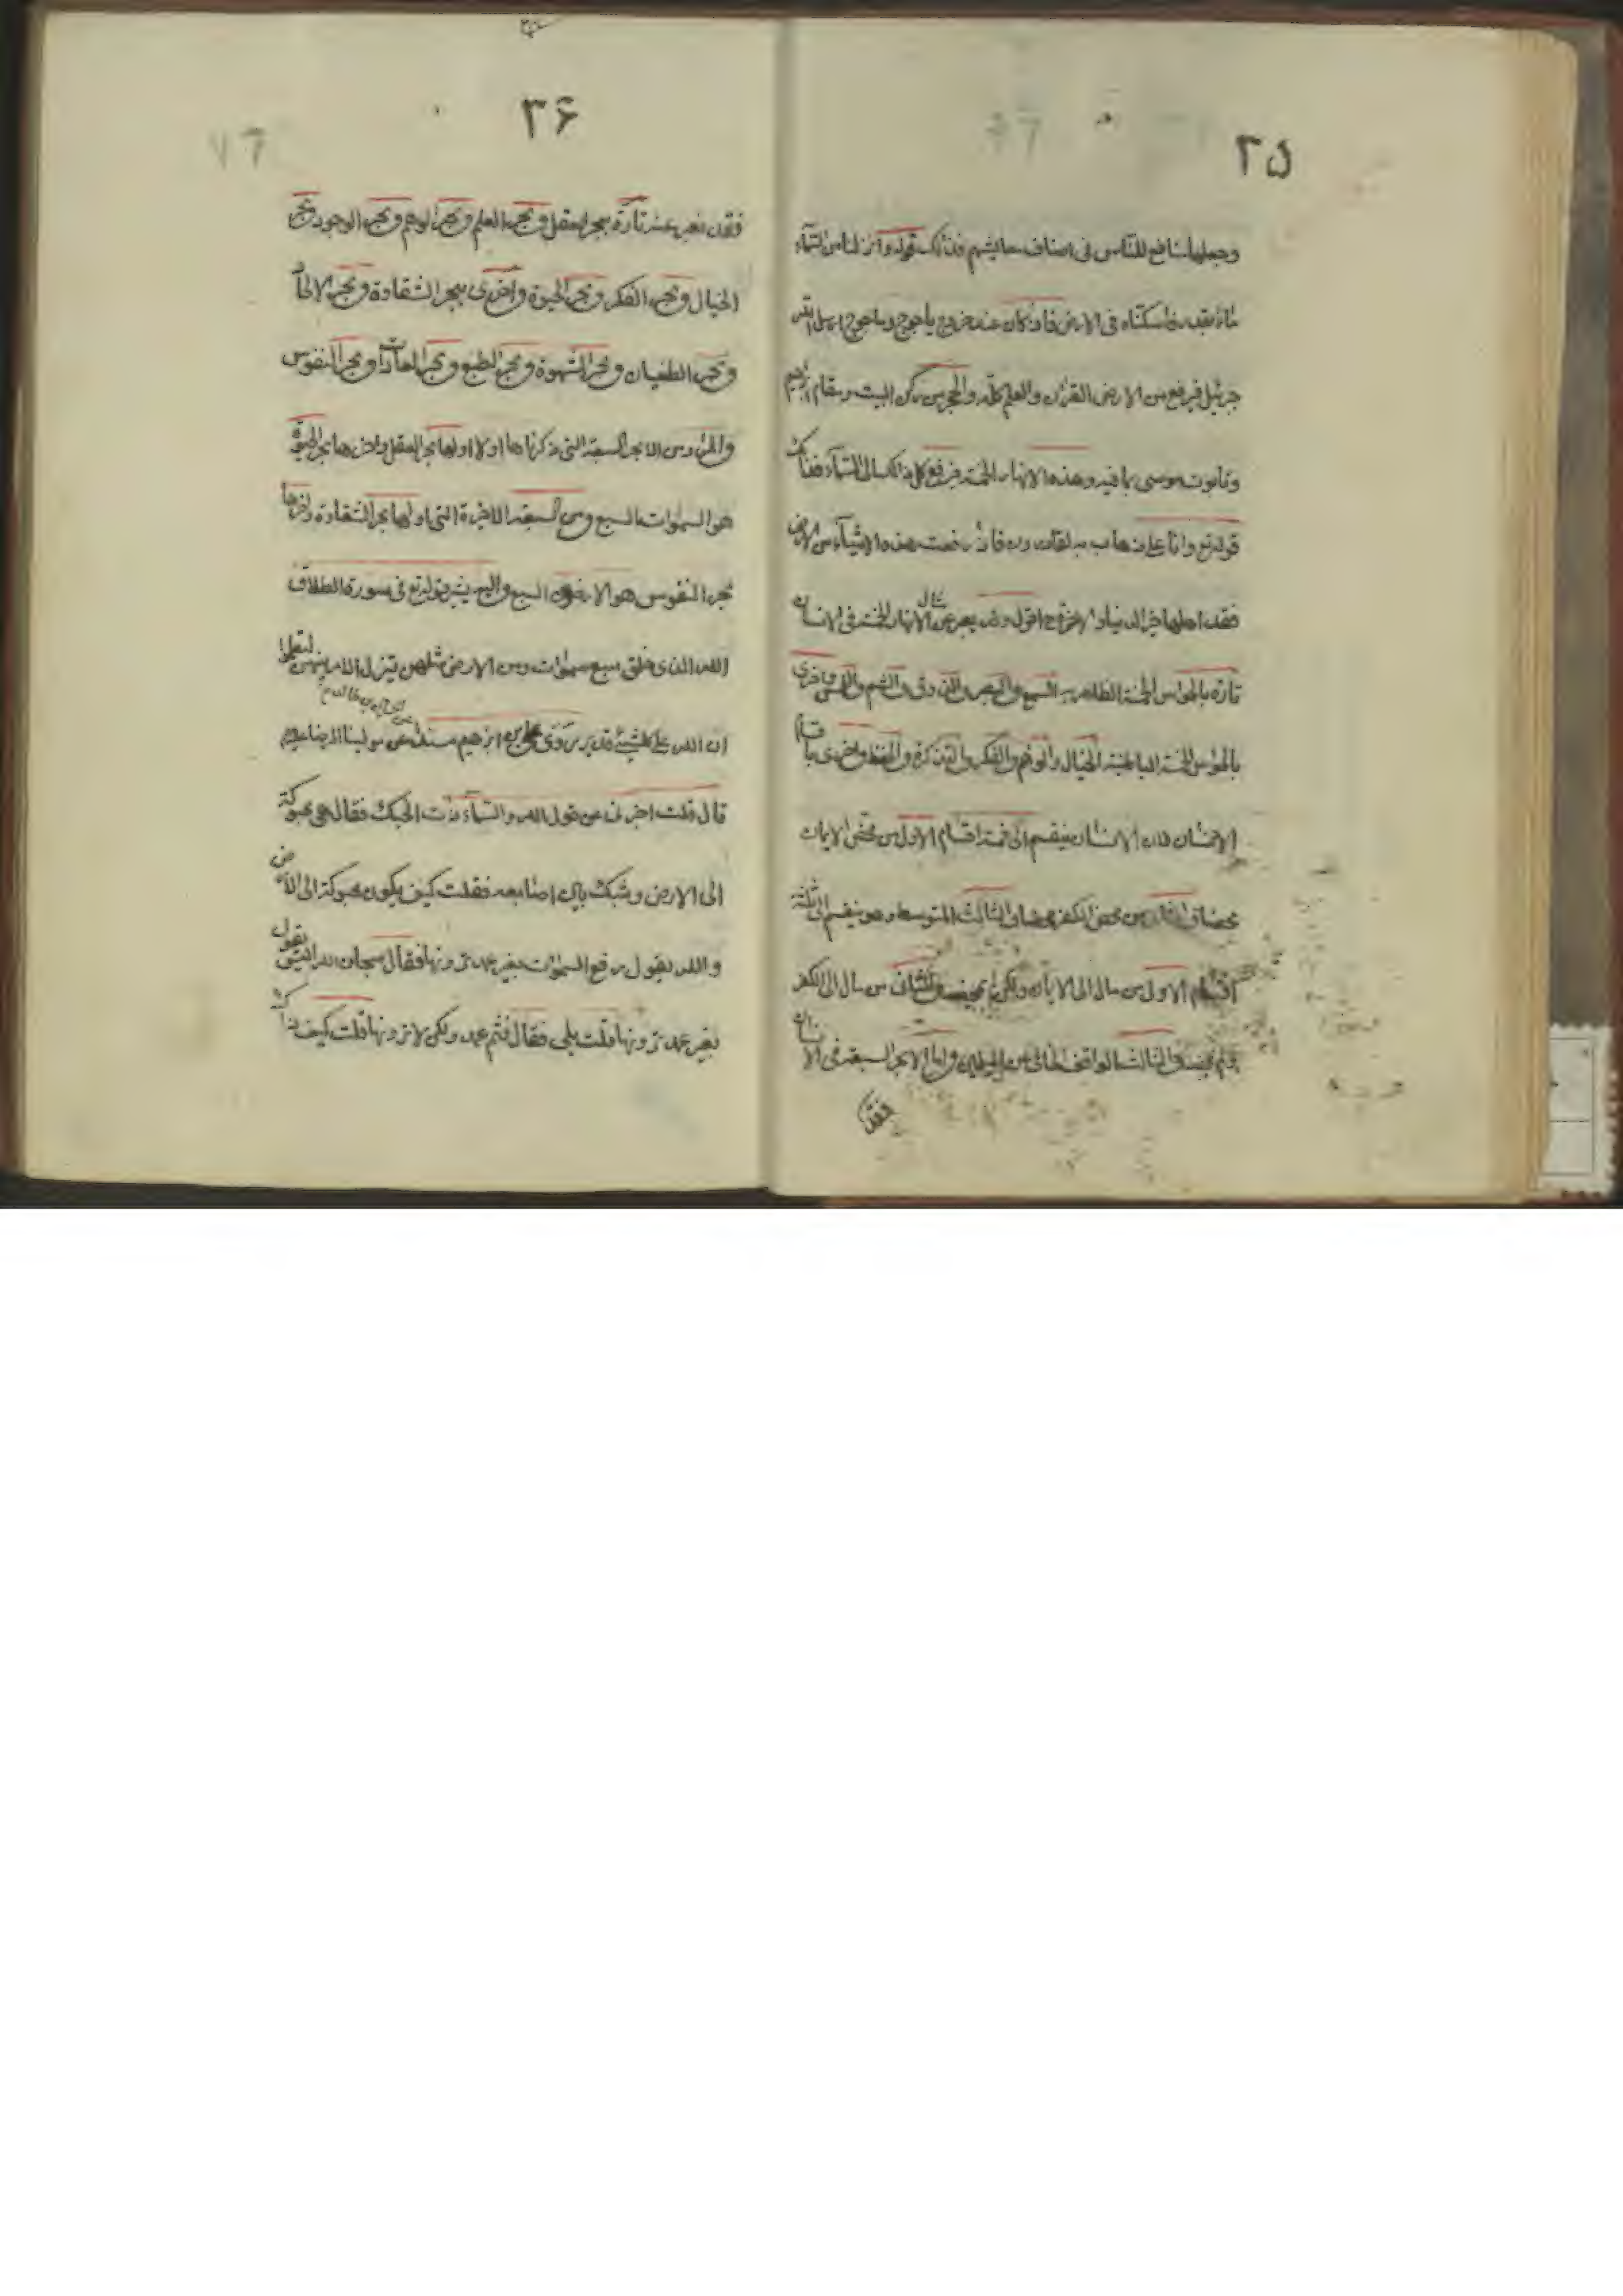 ٣٥
وجعلها منافع للناس فى اصناف معايشهم فذلك قوله وانزلنا من السمآء
مآء بقدر فاسكناه فى الارض فاذا كان عند خروج ياجوج وماجوج ارسل الله
جبرئيل فيرفع من الارض القرآن والعلم كله والحجر من ركن البيت ومقام ابراهيم
وتابوت موسى بما فيه وهذه الانهار الخمسة فيرفع كل ذلك الى السمآء فذلك
قوله تع وانا على ذهاب به لقادرون فاذا رفعت هذه الاشيآء من الارض
فقد اهلها خير الدنيا والاخرة اقول وقد يعبر عن الانهار الخمسة فى الانسان
تارة بالحواس الخمسة الظاهرية السمع والبصر والذوق والشم واللمس واخرى
بالحواس الخمسة الباطنية الخيال والوهم والفكر والتذكرة والحفظ واخرى باقسام
الانسان فان الانسان ينقسم الى خمسة اقسام الاول من محض الايمان
محضا والثانى من محض الكفر محضا والثالث المتوسط وهو ينقسم الى ثلثة
اقسام الاول من مال الى الايمان ولكن لم يمحضه والثانى من مال الى الكفر
ولم يمحضه والثالث الواقف الخالى من الميلين واما الابحر السبعة فى الانسان
فقد
٣۶
فقد يعبر عنه تارة ببحر العقل وبحر العلم وبحر الوهم وبحر الوجود وبحر
الخيال وبحر الفكر وبحر الحيوة واخرى ببحر الشقاوة وبحر الالحاد
وبحر الطغيان وبحر الشهوة وبحر الطبع وبحر العادات وبحر النفوس
والمراد من الابحر السبعة التى ذكرناها اولا اولها بحر العقل واخرها بحر الحيوة
هو السموات السبع ومن السبعة الاخيرة التى اولها بحر الشقاوة واخرها
بحر النفوس هو الارضون السبع واليه يشير قوله تع فى سورة الطلاق
الله الذى خلق سبع سموات ومن الارض مثلهن يتنزل الامر بينهن لتعلموا
ان الله على كل شىء قدير روى على بن ابرهيم مسندا عن مولينا الرضا عليه
قال قلت اخبرنى عن قول الله والسمآء ذات الحبك فقال هى محبوكة
الى الارض وشبك بين اصابعه فقلت كيف يكون محبوكة الى الارض
والله يقول رفع السموات بغير عمد ترونها فقال سبحان الله اليس يقول
بغير عمد ترونها قلت بلى فقال فثم عمد ولكن لا ترونها قلت كيف ذلك